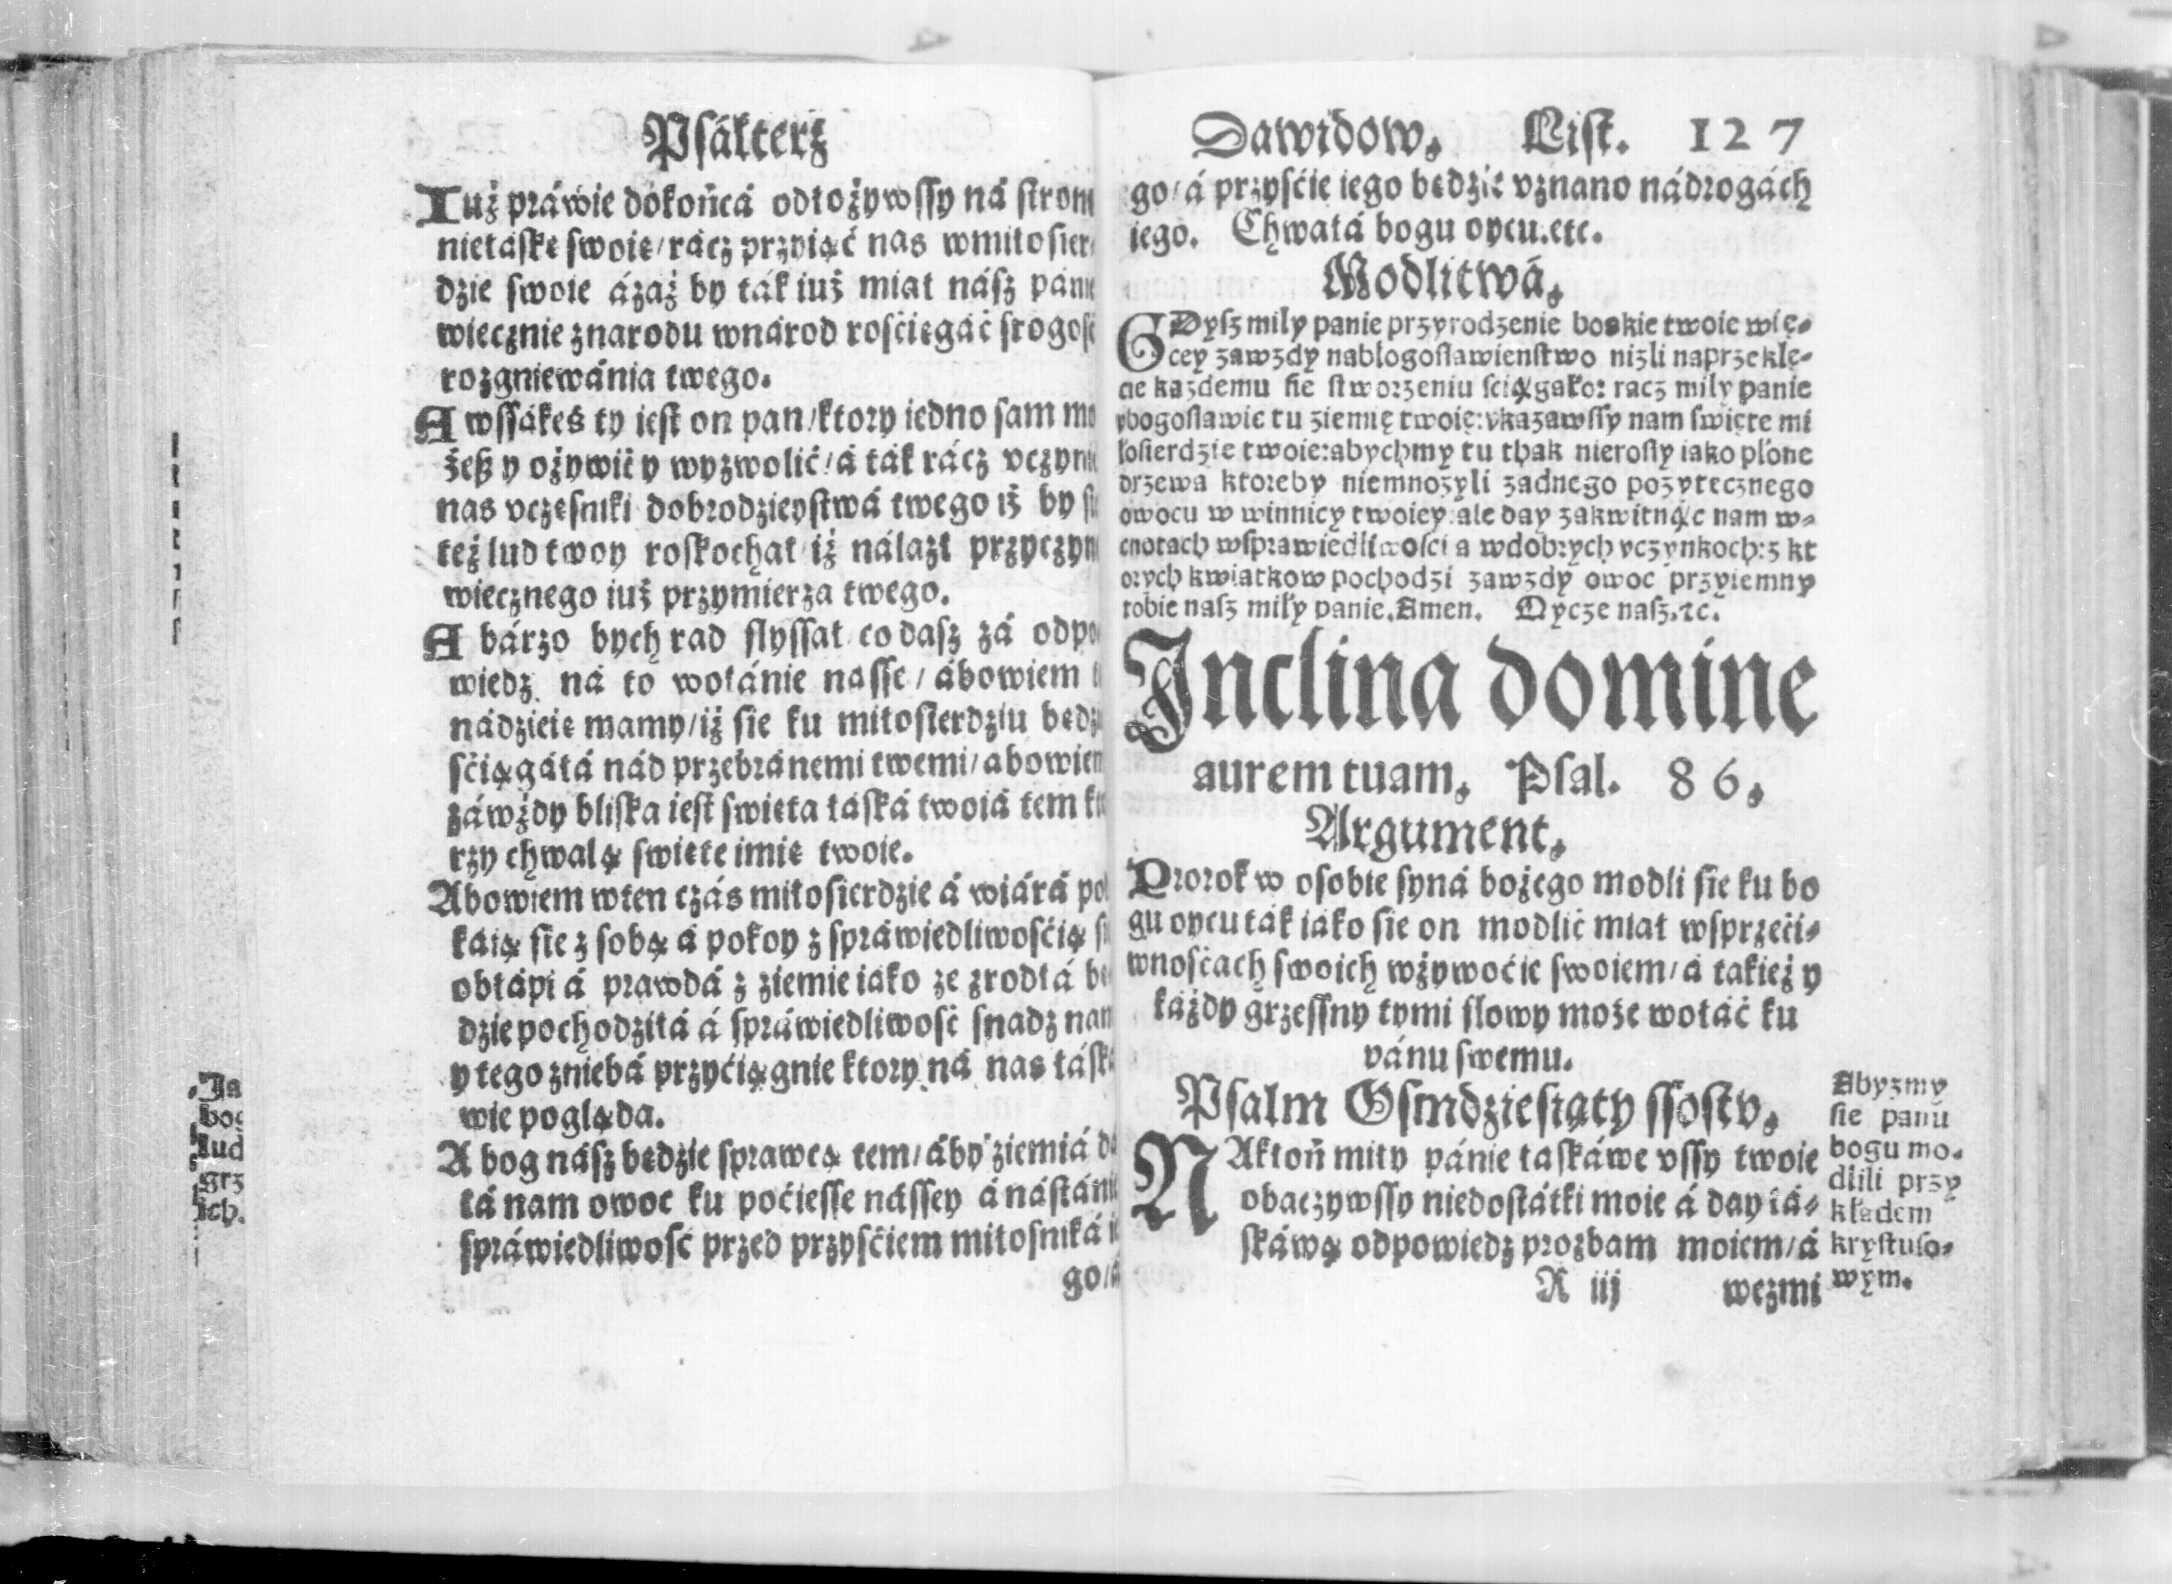 Psáłterz
Iuż práwie dokońcá odłożywssy ná
niełáskę swoię/rácz przyiąć nas wmiłosier
dzie swoie ázaż by ták iuż miał nász
wiecznie znarodu wnárod rośćiegáć srogość
rozgniewánia twego.
A wssákeś ty iest on pan/ktory iedno sam
żeß y ożywić y wyzwolić/á ták rácz
nas vczesniki dobrodzieystwá twego iż by
też lud twoy roskochał iż nálazł
wiecznego iuż przymierza twego.
A bárzo bych rad slyssał co dasz zá
wiedz ná to wołánie nasse/ábowiem
nádzieię mamy/iż sie ku miłosierdziu
śćiągáłá nád przebránemi twemi/abowiem
záwżdy bliska iest swięta łáská twoiá tem
rzy chwalą swięte imię twoie.
Abowiem wten czás miłosierdzie á wiárá
káią sie z sobą á pokoy z spráwiedliwośćią
obłápi á prawdá z ziemie iáko ze zrodłá
dzie pochodziłá á spráwiedliwość snadz nam
y tego zniebá przyćiągnie ktory ná nas
wie pogląda.
A bog nász będzie sprawcą tem/áby ziemiá
łá nam owoc ku poćiesse nássey á
spráwiedliwość przed przyśćiem miłosniká
go/á
Ja
lud
grz
ich.
Dawidow. List. 127
go/á przyśćie iego będzie vznano nádrogách
iego. Chwałá bogu oycu.etc.
Modlitwá.
GDysz miły panie przyrodzenie boskie twoie wię-
cey zawzdy nabłogosławienstwo nizli naprzeklę-
cie kazdemu sie stworzeniu sciągało: racz miły panie
vbogosławic tu ziemię twoię:vkazawssy nam swięte mi
łosierdzie twoie:abychmy tu thak nierosły iako płone
drzewa ktoreby niemnozyli zadnego pozytecznego
owocu w winnicy twoiey:ale day zakwitnąc nam w-
cnotach wsprawiedliwosci a wdobrych vczynkoch:z kt
orych kwiatkow pochodzi zawzdy owoc przyiemny
tobie nasz miły panie.Amen. Oycze nasz.ꝛc.
Inclina domine
aurem tuam. Psal. 86.
Argument.
Prorok w osobie syná bożego modli sie ku bo
gu oycu ták iáko sie on modlić miał wsprzeći-
wnośćach swoich wżywoćie swoiem/á takież y
káżdy grzessny tymi słowy może wołáć ku
pánu swemu.
Psalm Osmdziesiąty ssosty.
NAkłoń miły pánie łáskáwe vssy twoie
obaczywssy niedostátki moie á day łá-
skáwą odpowiedz prozbam moiem/á
R iij wezmi
Abyzmy
sie panu
bogu mo-
dlili przy
kładem
krystuso-
wym.